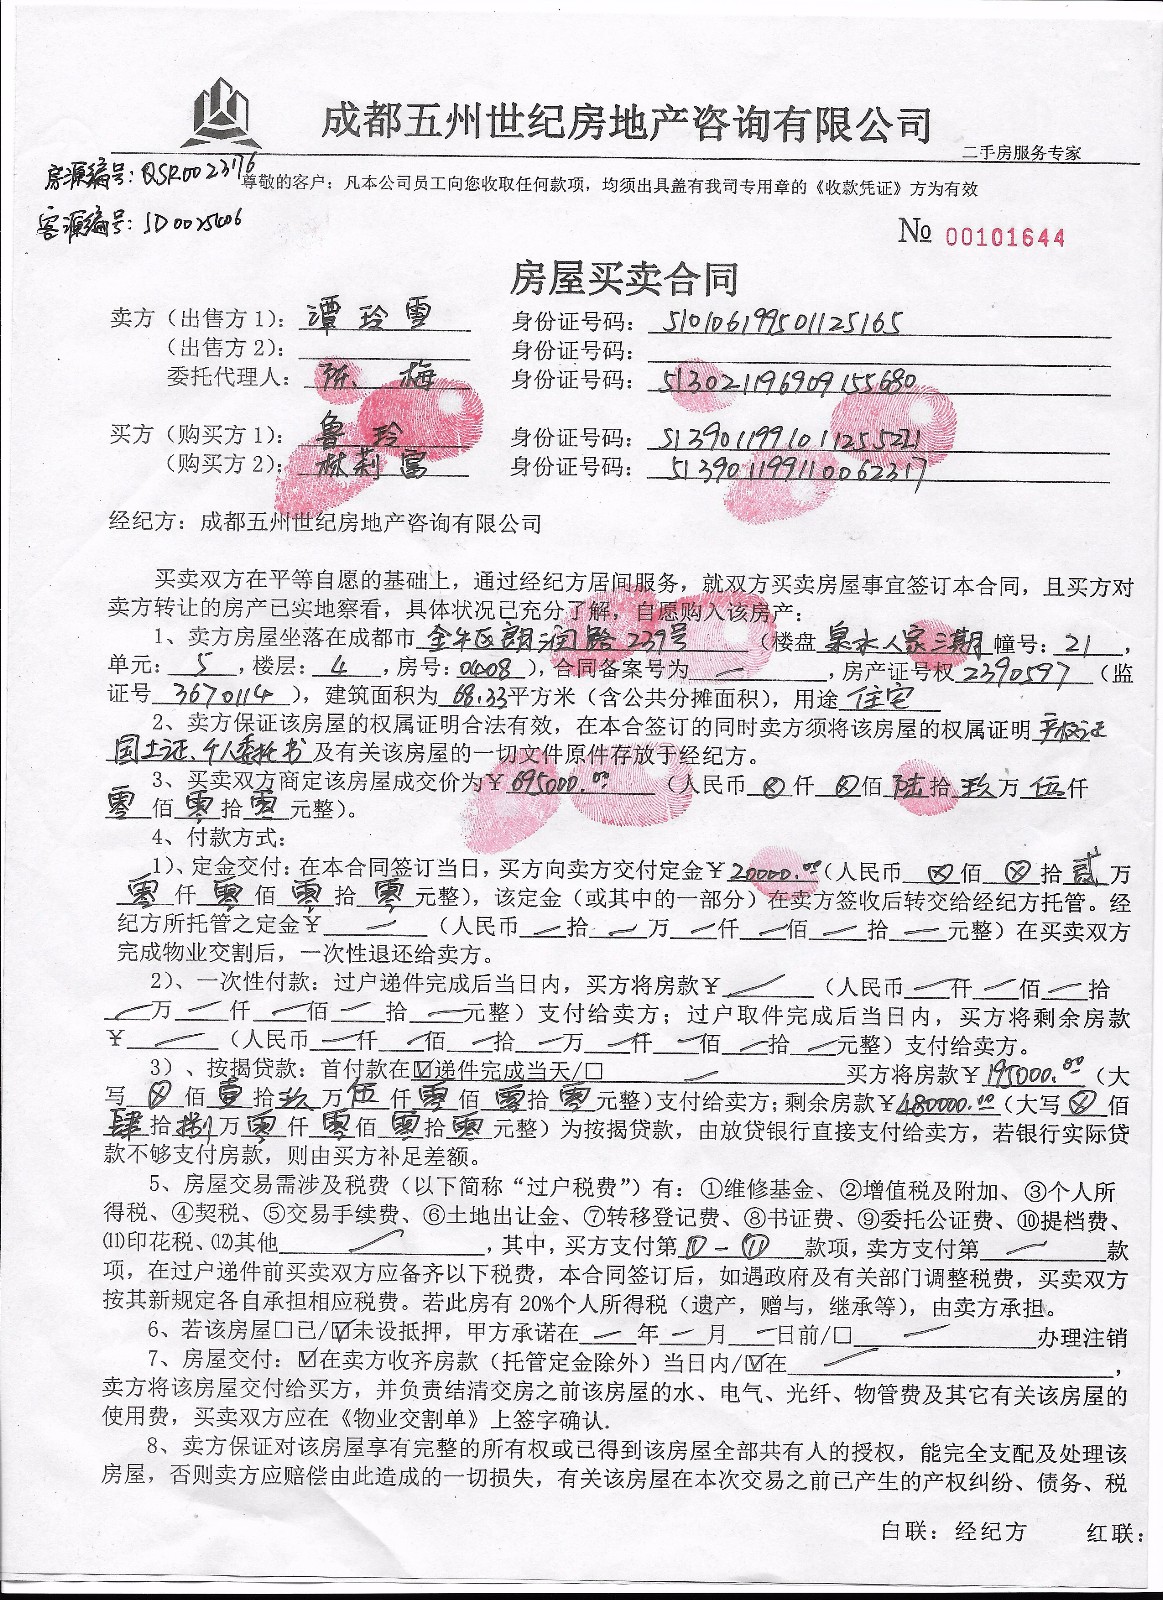 成都五州世纪房地产咨询有限公司
二手房服务专家
房源编号:QSR0023176
尊敬的客户:凡本公司员工向您收取任何款项,均须出具盖有我司专用章的《收款凭证》方为有效
客源编号:SD0025406
№ 00101644
房屋买卖合同
卖方(出售方1):潭玲雪 身份证号码:510106199501125165
(出售方2): 身份证号码:
委托代理人: 梅 身份证号码:513021196909155680
买方(购买方1):鲁玲 身份证号码:
(购买方2):林莉富 身份证号码:513901199110062317
经纪方:成都五州世纪房地产咨询有限公司
买卖双方在平等自愿的基础上,通过经纪方居间服务,就双方买卖房屋事宜签订本合同,且买方对
卖方转让的房产已实地察看,具体状况已充分了解,自愿购入该房产:
1、卖方房屋坐落在成都市金牛区朗润路239号(楼盘泉水人家三期幢号:21,
单元:5,楼层:4,房号:0408),合同备案号为一,房产证号权2390597(监
证号3670114),建筑面积为68.33平方米(含公共分摊面积),用途住宅
2、卖方保证该房屋的权属证明合法有效,在本合签订的同时卖方须将该房屋的权属证明产权证
国土证、个人委托书及有关该房屋的一切文件原件存放于经纪方。
3、买卖双方商定该房屋成交价为¥695000.00(人民币⊗仟⊗佰陆拾玖万伍仟
零佰零拾零元整)。
4、付款方式:
1)、定金交付:在本合同签订当日,买方向卖方交付定金¥20000.00(人民币⊗佰⊗拾贰万
零仟零佰零拾零元整),该定金(或其中的一部分)在卖方签收后转交给经纪方托管。经
纪方所托管之定金¥一(人民币一拾一万一仟一佰一拾一元整)在买卖双方
完成物业交割后,一次性退还给卖方。
2)、一次性付款:过户递件完成后当日内,买方将房款¥一(人民币一仟一佰一拾
一万一仟一佰一拾一元整)支付给卖方;过户取件完成后当日内,买方将剩余房款
¥一(人民币一仟一佰一拾一万一仟一佰一拾一元整)支付给卖方。
3)、按揭贷款:首付款在☑递件完成当天/□一买方将房款¥195000.00(大
写⊗佰壹拾玖万伍仟零佰零拾零元整)支付给卖方;剩余房款¥480000.00(大写⊗佰
肆拾捌万零仟零佰零拾零元整)为按揭贷款,由放贷银行直接支付给卖方,若银行实际贷
款不够支付房款,则由买方补足差额。
5、房屋交易需涉及税费(以下简称“过户税费”)有:①维修基金、②增值税及附加、③个人所
得税、④契税、⑤交易手续费、⑥土地出让金、⑦转移登记费、⑧书证费、⑨委托公证费、⑩提档费、
⑾印花税、⑿其他一,其中,买方支付第①-⑪款项,卖方支付第一款
项,在过户递件前买卖双方应备齐以下税费,本合同签订后,如遇政府及有关部门调整税费,买卖双方
按其新规定各自承担相应税费。若此房有20%个人所得税(遗产,赠与,继承等),由卖方承担。
6、若该房屋□已/☑未设抵押,甲方承诺在一年一月一日前/□一办理注销
7、房屋交付:☑在卖方收齐房款(托管定金除外)当日内/☑在一,
卖方将该房屋交付给买方,并负责结清交房之前该房屋的水、电气、光纤、物管费及其它有关该房屋的
使用费,买卖双方应在《物业交割单》上签字确认.
8、卖方保证对该房屋享有完整的所有权或已得到该房屋全部共有人的授权,能完全支配及处理该
房屋,否则卖方应赔偿由此造成的一切损失,有关该房屋在本次交易之前已产生的产权纠纷、债务、税
白联:经纪方 红联: